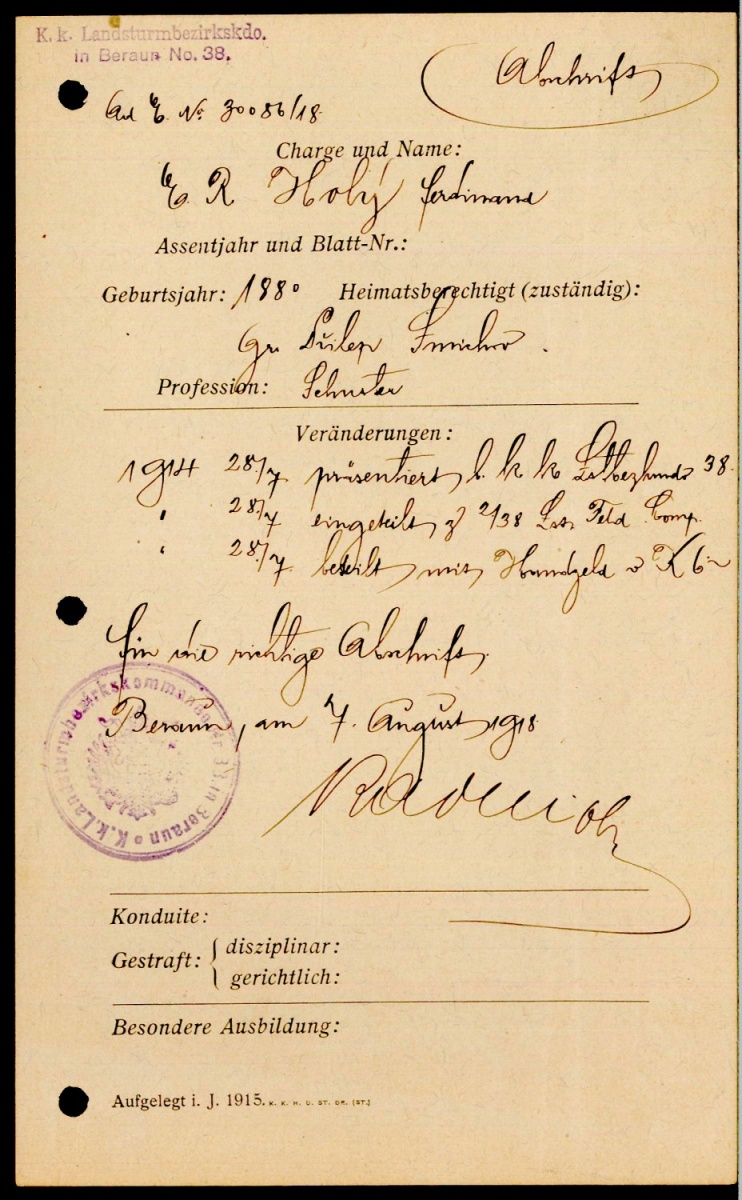 K. k. Landsturmbezirkskdo.
in Beraun No. 38.
Abschrift
Ad E. Nr 30086/18
Charge und Name:
E. R Holý Ferdinand
Assentjahr und Blatt-Nr.:
Geburtsjahr: 1880 Heimatsberechtigt (zuständig):
Gr. Smichov.
Profession: Schuster
Veränderungen:
1914 28./7 präsentiert b. k k Lstbezkmdo 38.
" 28/7 eingeteilt z 2/38 Lst. Feld Comp.
" 28./7. beteilt mit Handgeld v K 6
Für die richtige Abschrift.
Beraun, am 7. August 1918
K.k. Landsturmbezirkskommando Nr. 38. in Beraun
Konduite:
Gestraft: { disziplinar:
gerichtlich:
Besondere Ausbildung:
Aufgelegt i. J. 1915. K. K. H. U. ST. DR. (ST.)